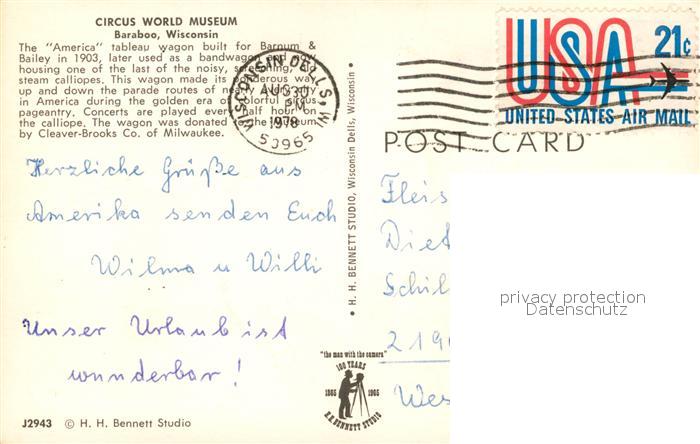 CIRCUS WORLD MUSEUM
Baraboo, Wisconsin
The "America" tableau wagon built for Barnum &
Bailey in 1903, later used as a bandwagon and now
housing one of the last of the noisy, screeching, big
steam calliopes. This wagon made its ponderous way
up and down the parade routes of nearly every city
in America during the golden era of colorful circus
pageantry. Concerts are played every half hour on
the calliope. The wagon was donated to the museum
by Cleaver-Brooks Co. of Milwaukee.
Herzliche Grüße aus
Amerika senden Euch
Wilma u Willi
Unser Urlaub ist
wunderbar!
J2943 © H. H. Bennett Studio
• H. H. BENNETT STUDIO, Wisconsin Dells, Wisconsin •
WISCONSIN DELLS, WI
AUG 30
PM
1978
53965
USA 21c
UNITED STATES AIR MAIL
POST CARD
Fleis
Diet
Schil
219
Wes
privacy protection
Datenschutz
"the man with the camera"
100 YEARS
1865 1965
H.H. BENNETT STUDIO